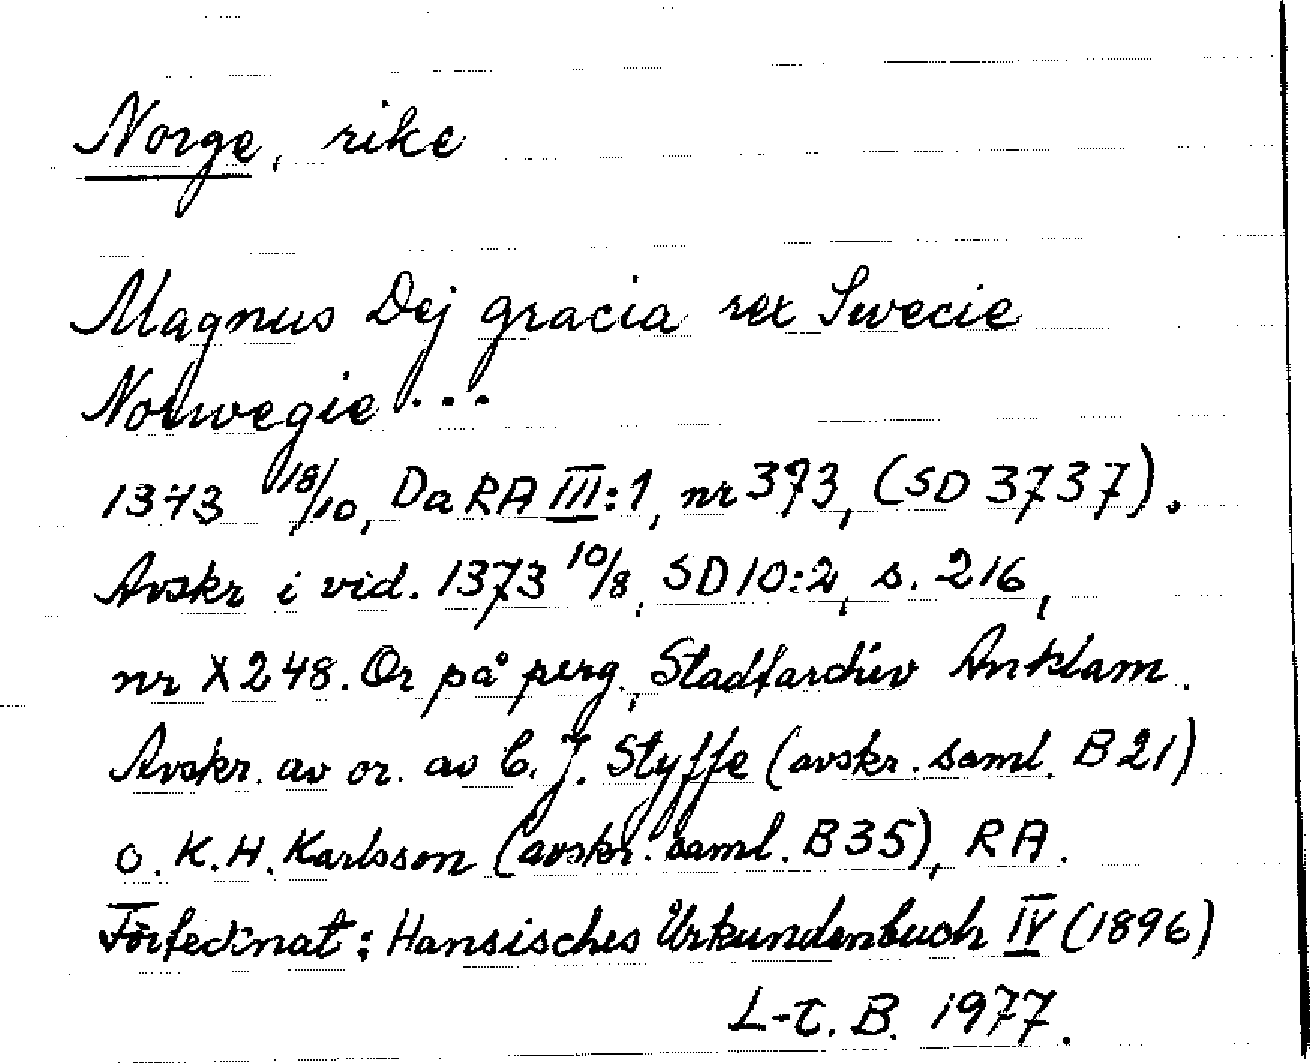 Norge, rike
Magnus Dej gracia rex Swecie
Norwegie...
1343 18/10, Da RA III:1, nr 373, (SD 3737).
Avskr i vid. 1373 10/8, SD 10:2, s. 216,
nr X 248. Or på perg., Stadtarchiv Anklam.
Avskr. av or. av C. J. Styffe (avskr. saml. B 21)
o. K. H. Karlsson (avskr. saml. B 35), RA.
Förtecknat: Hansisches Urkundenbuch IV (1896)
L-T. B. 1977.